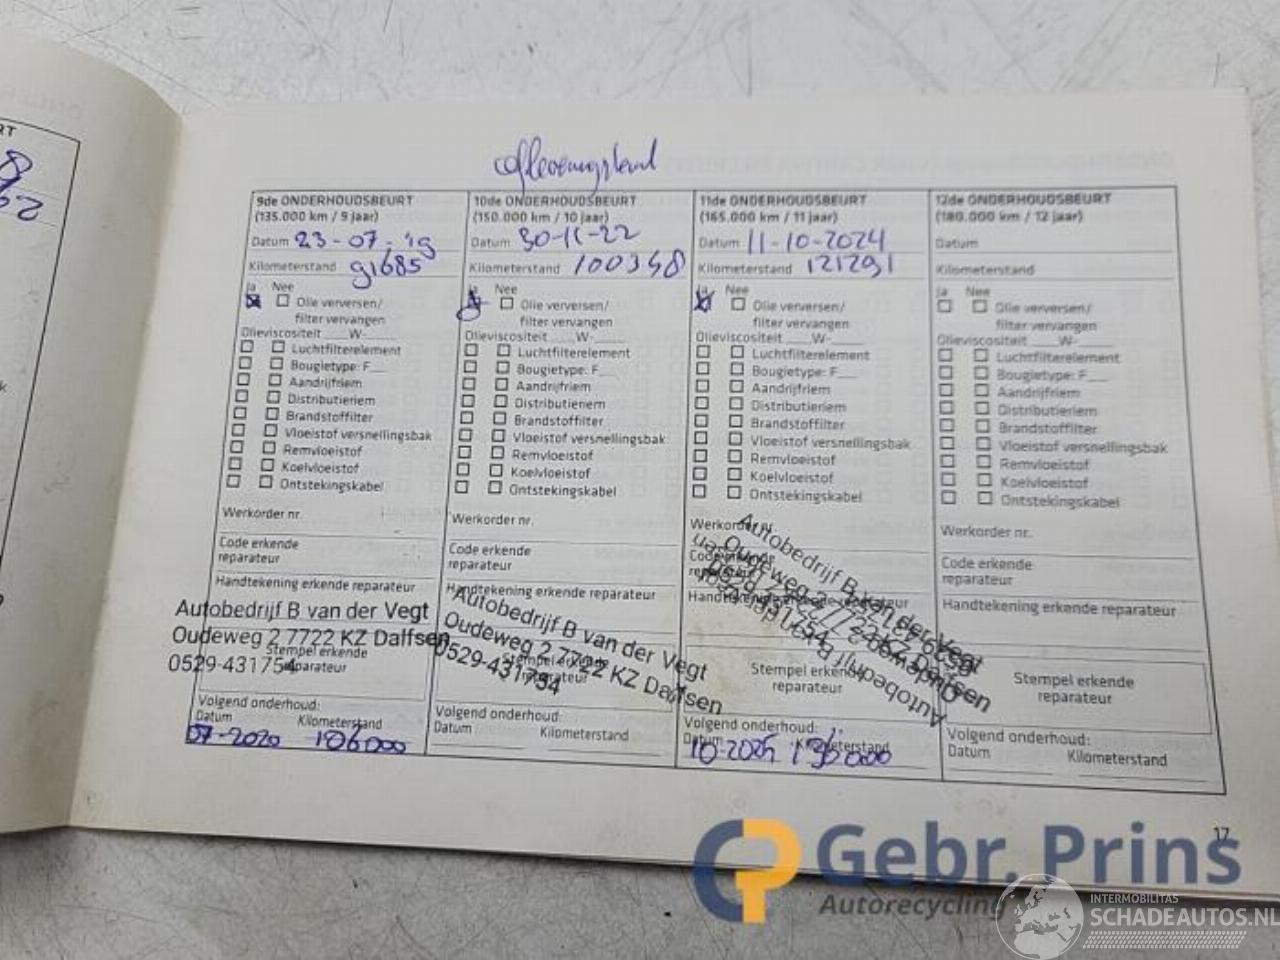 RT
afleveringsbeurt
9de ONDERHOUDSBEURT
(135.000 km / 9 jaar)
Datum 23-07-'19
Kilometerstand 91685
Ja Nee
Olie verversen/
filter vervangen
Olieviscositeit ___W-___
Luchtfilterelement
Bougietype: F__
Aandrijfriem
Distributieriem
Brandstoffilter
Vloeistof versnellingsbak
Remvloeistof
Koelvloeistof
Ontstekingskabel
Werkorder nr.
Code erkende
reparateur
Handtekening erkende reparateur
Autobedrijf B van der Vegt
Oudeweg 2 7722 KZ Dalfsen
0529-431754
Stempel erkende
reparateur
Volgend onderhoud:
Datum Kilometerstand
07-2020 106000
10de ONDERHOUDSBEURT
(150.000 km / 10 jaar)
Datum 30-11-22
Kilometerstand 100348
Ja Nee
Olie verversen/
filter vervangen
Olieviscositeit ___W-___
Luchtfilterelement
Bougietype: F__
Aandrijfriem
Distributieriem
Brandstoffilter
Vloeistof versnellingsbak
Remvloeistof
Koelvloeistof
Ontstekingskabel
Werkorder nr.
Code erkende
reparateur
Handtekening erkende reparateur
Autobedrijf B van der Vegt
Oudeweg 2 7722 KZ Dalfsen
0529-431754
Stempel erkende
reparateur
Volgend onderhoud:
Datum Kilometerstand
11de ONDERHOUDSBEURT
(165.000 km / 11 jaar)
Datum 11-10-2024
Kilometerstand 121291
Ja Nee
Olie verversen/
filter vervangen
Olieviscositeit ___W-___
Luchtfilterelement
Bougietype: F__
Aandrijfriem
Distributieriem
Brandstoffilter
Vloeistof versnellingsbak
Remvloeistof
Koelvloeistof
Ontstekingskabel
Werkorder nr.
Code erkende
reparateur
Handtekening erkende reparateur
Autobedrijf B van der Vegt
Oudeweg 2 7722 KZ Dalfsen
0529-431754
Stempel erkende
reparateur
Volgend onderhoud:
Datum Kilometerstand
10-2025 136000
12de ONDERHOUDSBEURT
(180.000 km / 12 jaar)
Datum
Kilometerstand
Ja Nee
Olie verversen/
filter vervangen
Olieviscositeit ___W-___
Luchtfilterelement
Bougietype: F__
Aandrijfriem
Distributieriem
Brandstoffilter
Vloeistof versnellingsbak
Remvloeistof
Koelvloeistof
Ontstekingskabel
Werkorder nr.
Code erkende
reparateur
Handtekening erkende reparateur
Stempel erkende
reparateur
Volgend onderhoud:
Datum Kilometerstand
17
Gebr. Prins
Autorecycling
INTERMOBILITAS
SCHADEAUTOS.NL